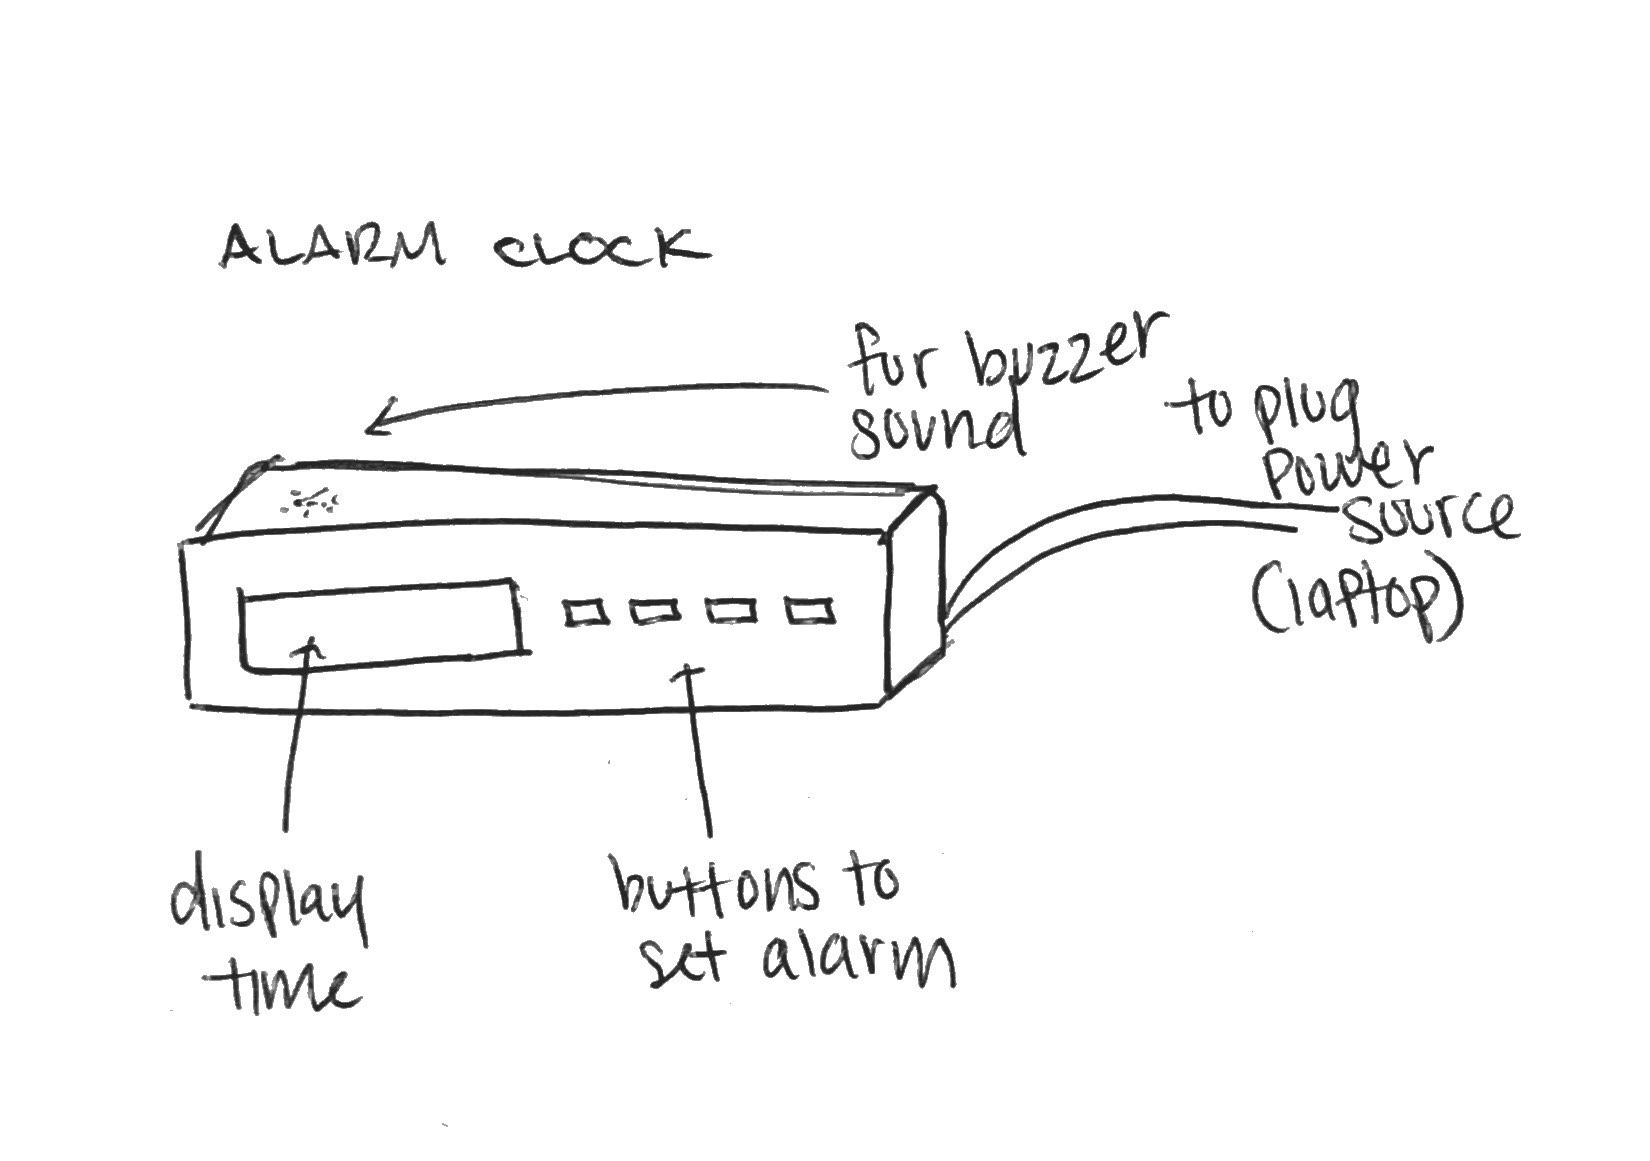 ALARM CLOCK
for buzzer
sound
to plug
power
source
(laptop)
display
time
buttons to
set alarm